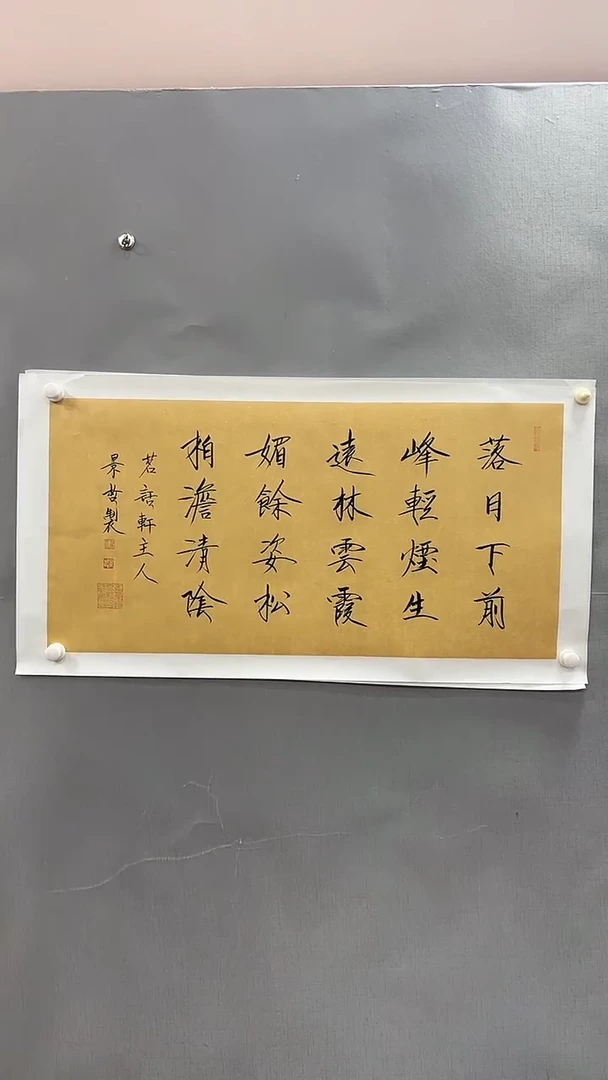 落日下前
峰輕煙生
遠林雲霞
媚餘姿松
柏澹清陰
茗語軒主人
景哲製